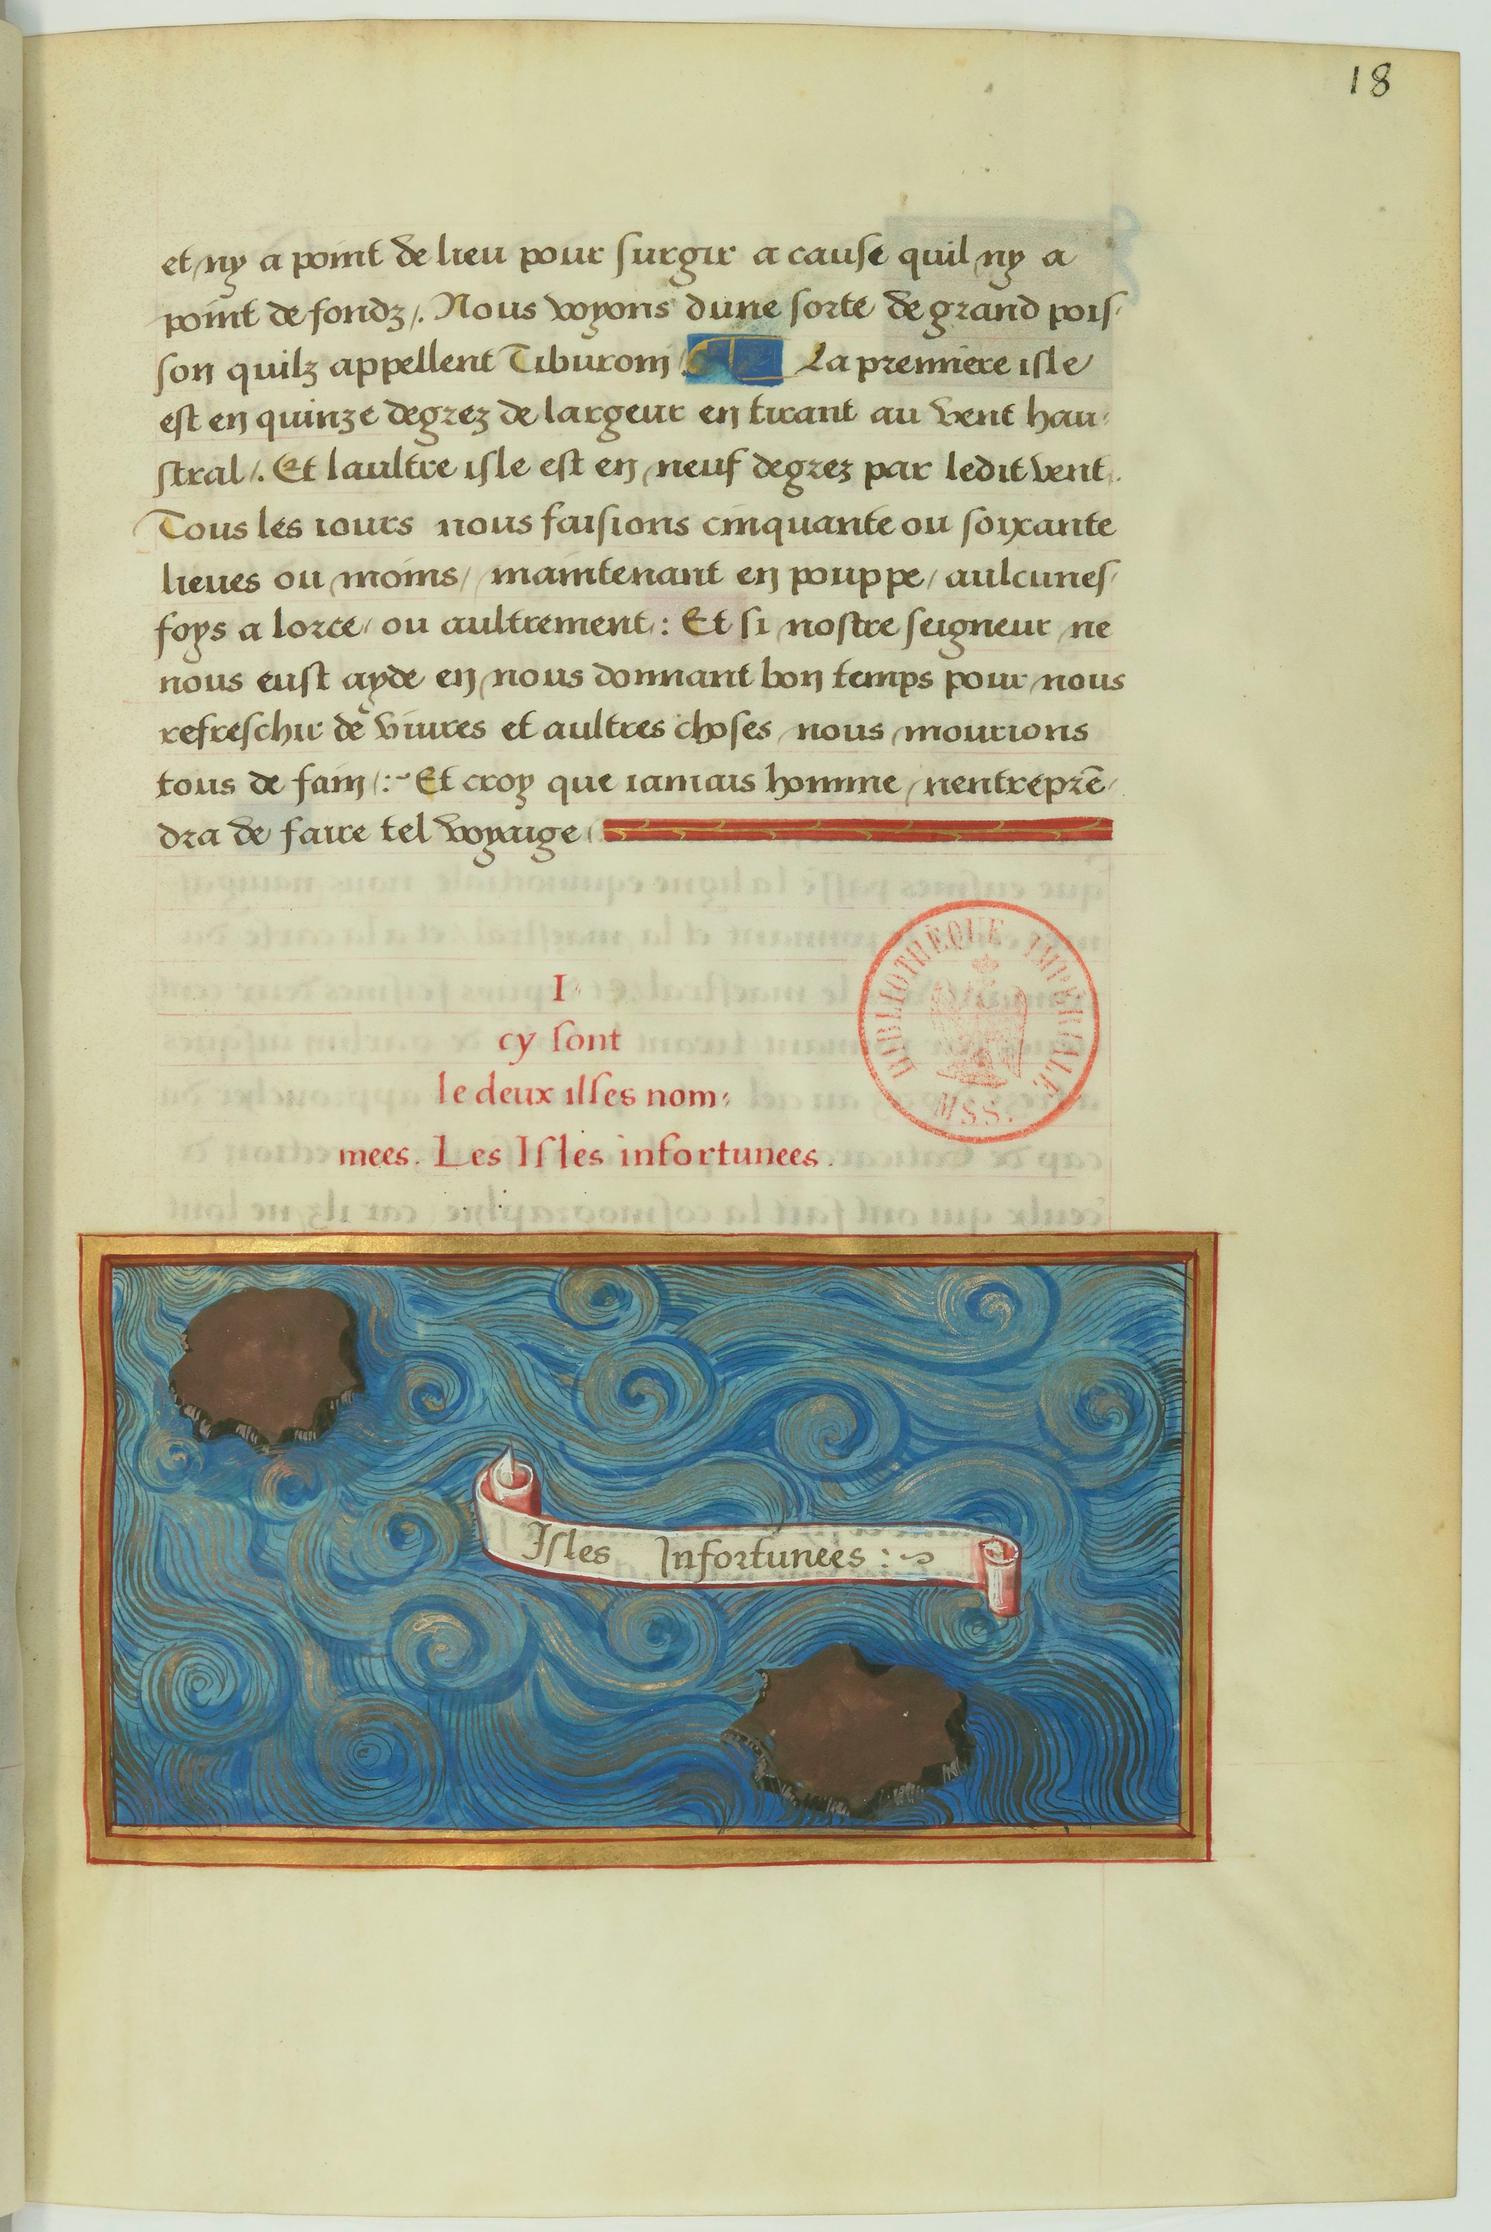 18
et ny a point de lieu pour surgir a cause quil ny a
point de fondz /. Nous voyons dune sorte de grand pois⸗
son quilz appellent Tiburoni La premiere isle
est en quinze degrez de largeur en tirant au vent hau⸗
stral /. Et laultre isle est en neuf degrez par ledit vent.
Tous les iours nous faisions cinquante ou soixante
lieues ou moins / maintenant en pouppe / aulcunes⸗
foys a lorce / ou aultrement : Et si nostre seigneur ne
nous eust ayde en nous donnant bon temps pour nous
refreschir de viures et aultres choses nous mourions
tous de fain /:~ Et croy que iamais homme nentreprē⸗
dra de faire tel voyaige
I
cy sont
le deux illes nom⸗
mees. Les Isles infortunees.
BIBLIOTHÈQUE IMPÉRIALE
MSS.
Isles Infortunees :~